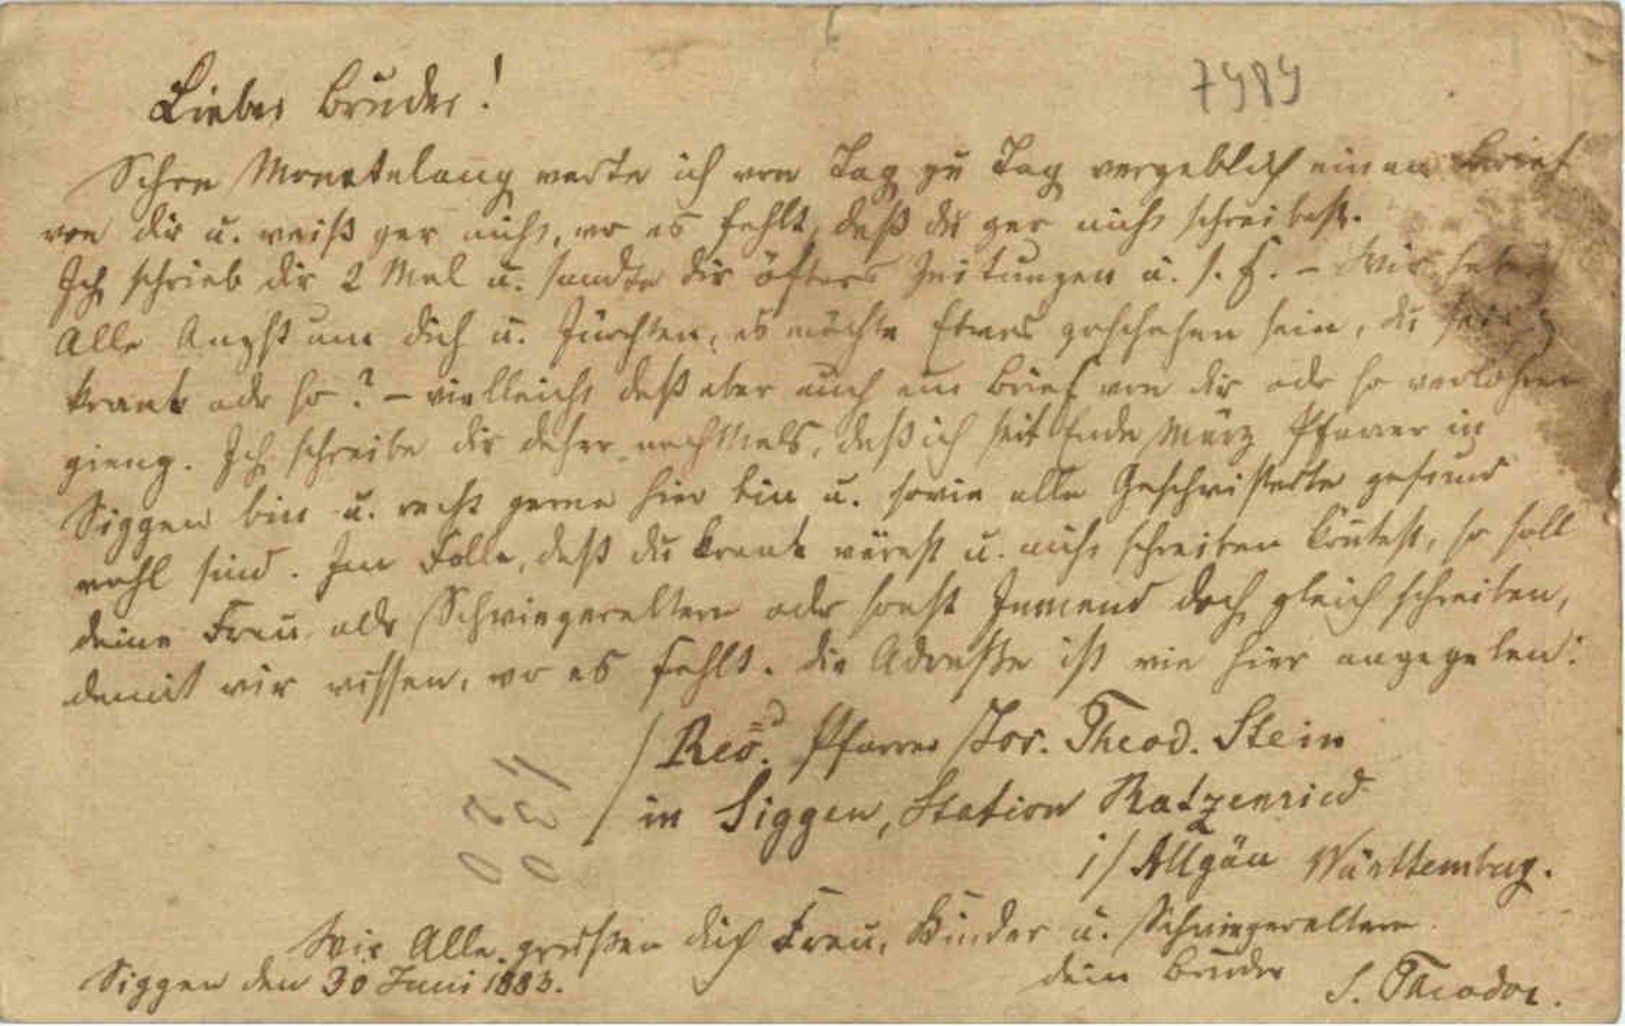 7484
Lieber Bruder!
Schon Monatelang warte ich von Tag zu Tag vergeblich einen Brief
von dir u. weiß gar nicht, wo es fehlt, daß du gar nicht schreibest.
Ich schrieb dir 2 Mal u. sandte dir öfters Zeitungen u. s. f. – Wir haben
Alle Angst um dich u. fürchten, es möchte Etwas geschehen sein, du seiest
krank oder so? – vielleicht daß aber auch ein Brief von dir oder so verlohren
gieng. Ich schreibe dir daher nochmals, daß ich seit Ende März Pfarrer in
Siggen bin u. recht gerne hier bin u. sowie alle Geschwisterte gesund
wohl sind. Im Falle, daß du krank wärest u. nicht schreiben könntest, so soll
deine Frau oder Schwiegereltern oder sonst Jemand doch gleich schreiben,
damit wir wissen, wo es fehlt. die Adresse ist wie hier angegeben:
/ Revd. Pfarrer Jos. Theod. Stein
in Siggen, Station Ratzenried
i/ Allgäu Württemberg.
Wir Alle grüßen dich Frau, Kinder u. Schwiegereltern
Siggen den 30 Juni 1883. dein Bruder S. Theodor.